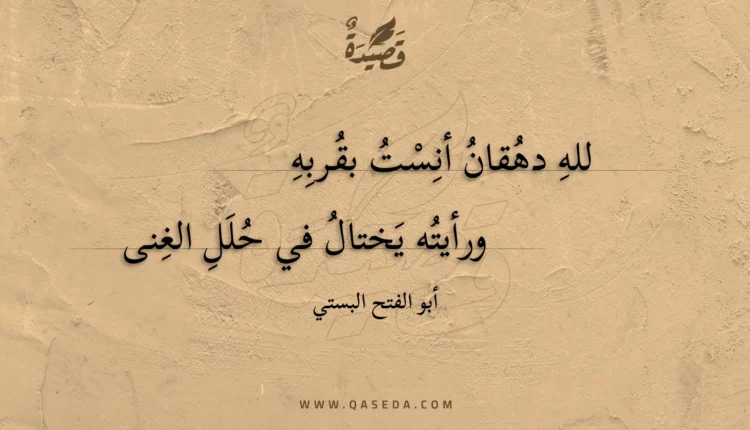 قَصِيدَةٌ
للهِ دهُقانُ أنِسْتُ بقُربِهِ
ورأيتُه يَختالُ في حُلَلِ الغِنى
أبو الفتح البستي
WWW.QASEDA.COM